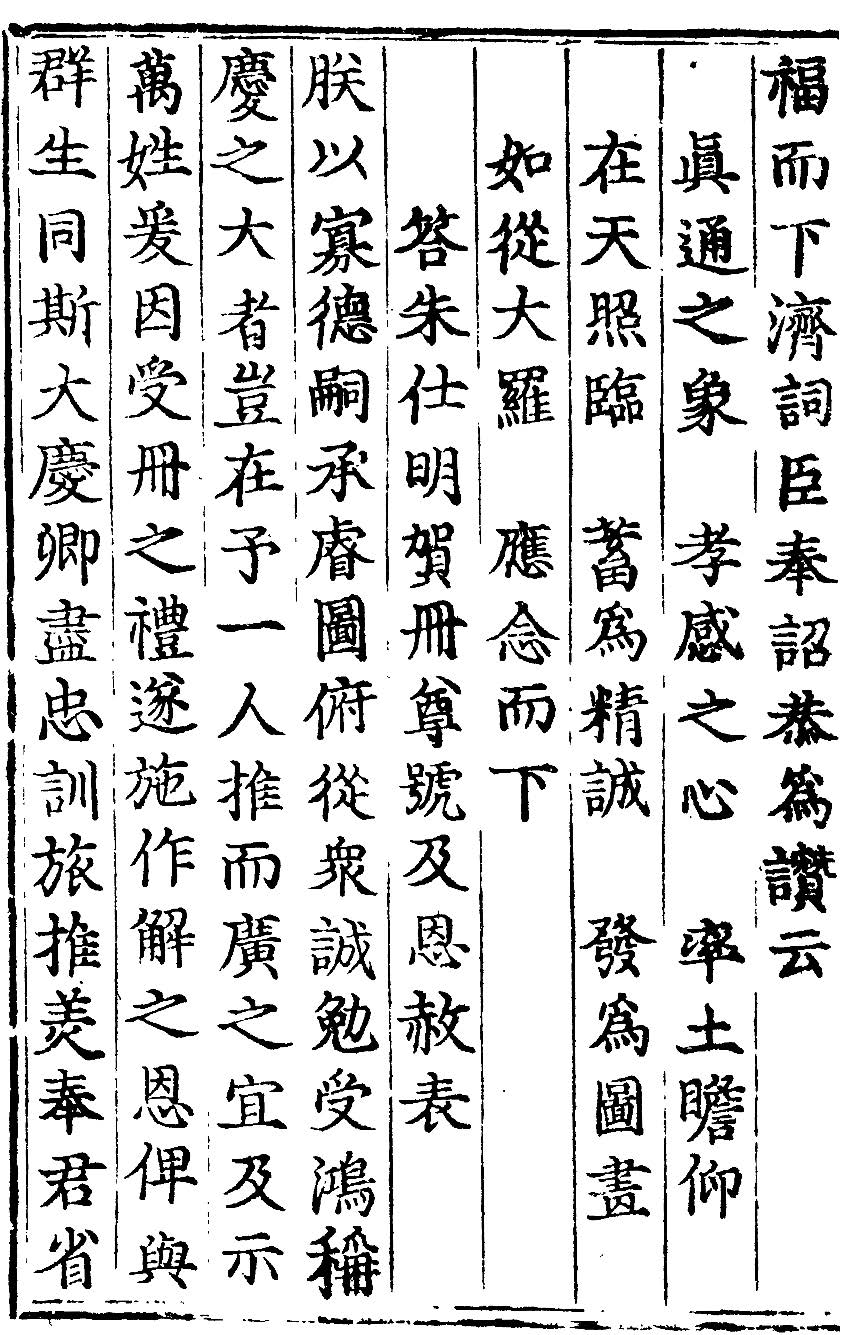 福而下濟詞臣奉詔恭爲讚云
眞通之象　孝感之心　率土瞻仰
在天照臨　蓄爲精誠　發爲圖畫
如從大羅　應念而下
答朱仕明賀冊尊號及恩赦表
朕以寡德嗣承睿圖俯從衆誠勉受鴻稱
慶之大者豈在予一人推而廣之宜及示
萬姓爰因受冊之禮遂施作解之恩俾與
群生同斯大慶卿盡忠訓旅推美奉君省